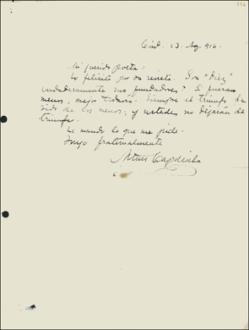 Mi querido poeta:
Lo felicito por su revista. Son "Diez"
verdaderamente sus fundadores? Si fueran
menos, mejor todavía. Siempre el triunfo ha
sido de los menos; y ustedes no dejarán de
triunfar.
Le mando lo que me pide.
Suyo fraternalmente
Arturo Capdevila